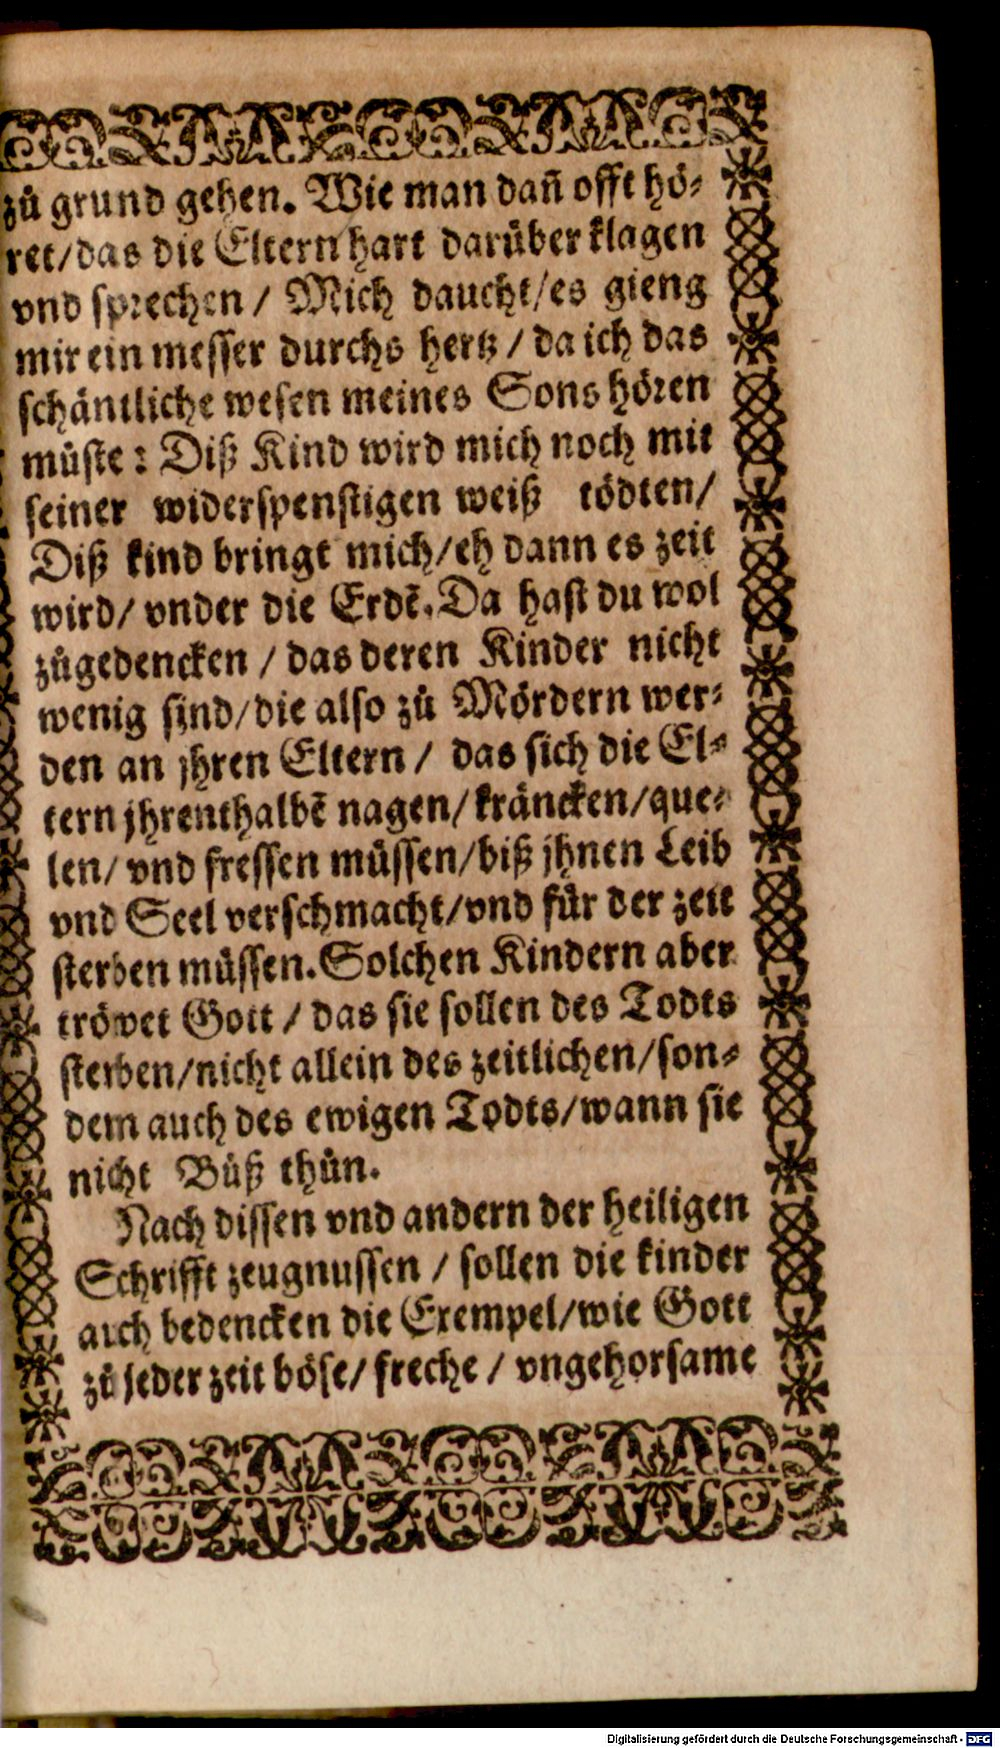 zů grund gehen. Wie man dañ offt hö⸗
ret/das die Eltern hart darüber klagen
vnd sprechen / Mich daucht/es gieng
mir ein messer durchs hertz / da ich das
schäntliche wesen meines Sons hören
müste: Diß Kind wird mich noch mit
seiner widerspenstigen weiß tödten/
Diß kind bringt mich/eh dann es zeit
wird/ vnder die Erdẽ. Da hast du wol
zůgedencken / das deren Kinder nicht
wenig sind/die also zů Mördern wer⸗
den an jhren Eltern / das sich die El⸗
tern jhrenthalbẽ nagen/kräncken/que⸗
len/ vnd fressen müssen/biß jhnen Leib
vnd Seel verschmacht/vnd für der zeit
sterben müssen. Solchen Kindern aber
tröwet Gott / das sie sollen des Todts
sterben/nicht allein des zeitlichen/son⸗
dern auch des ewigen Todts/wann sie
nicht Bůß thůn.
Nach dissen vnd andern der heiligen
Schrifft zeugnussen / sollen die kinder
auch bedencken die Exempel/wie Gott
zů jeder zeit böse/ freche / vngehorsame
Digitalisierung gefördert durch die Deutsche Forschungsgemeinschaft - DFG